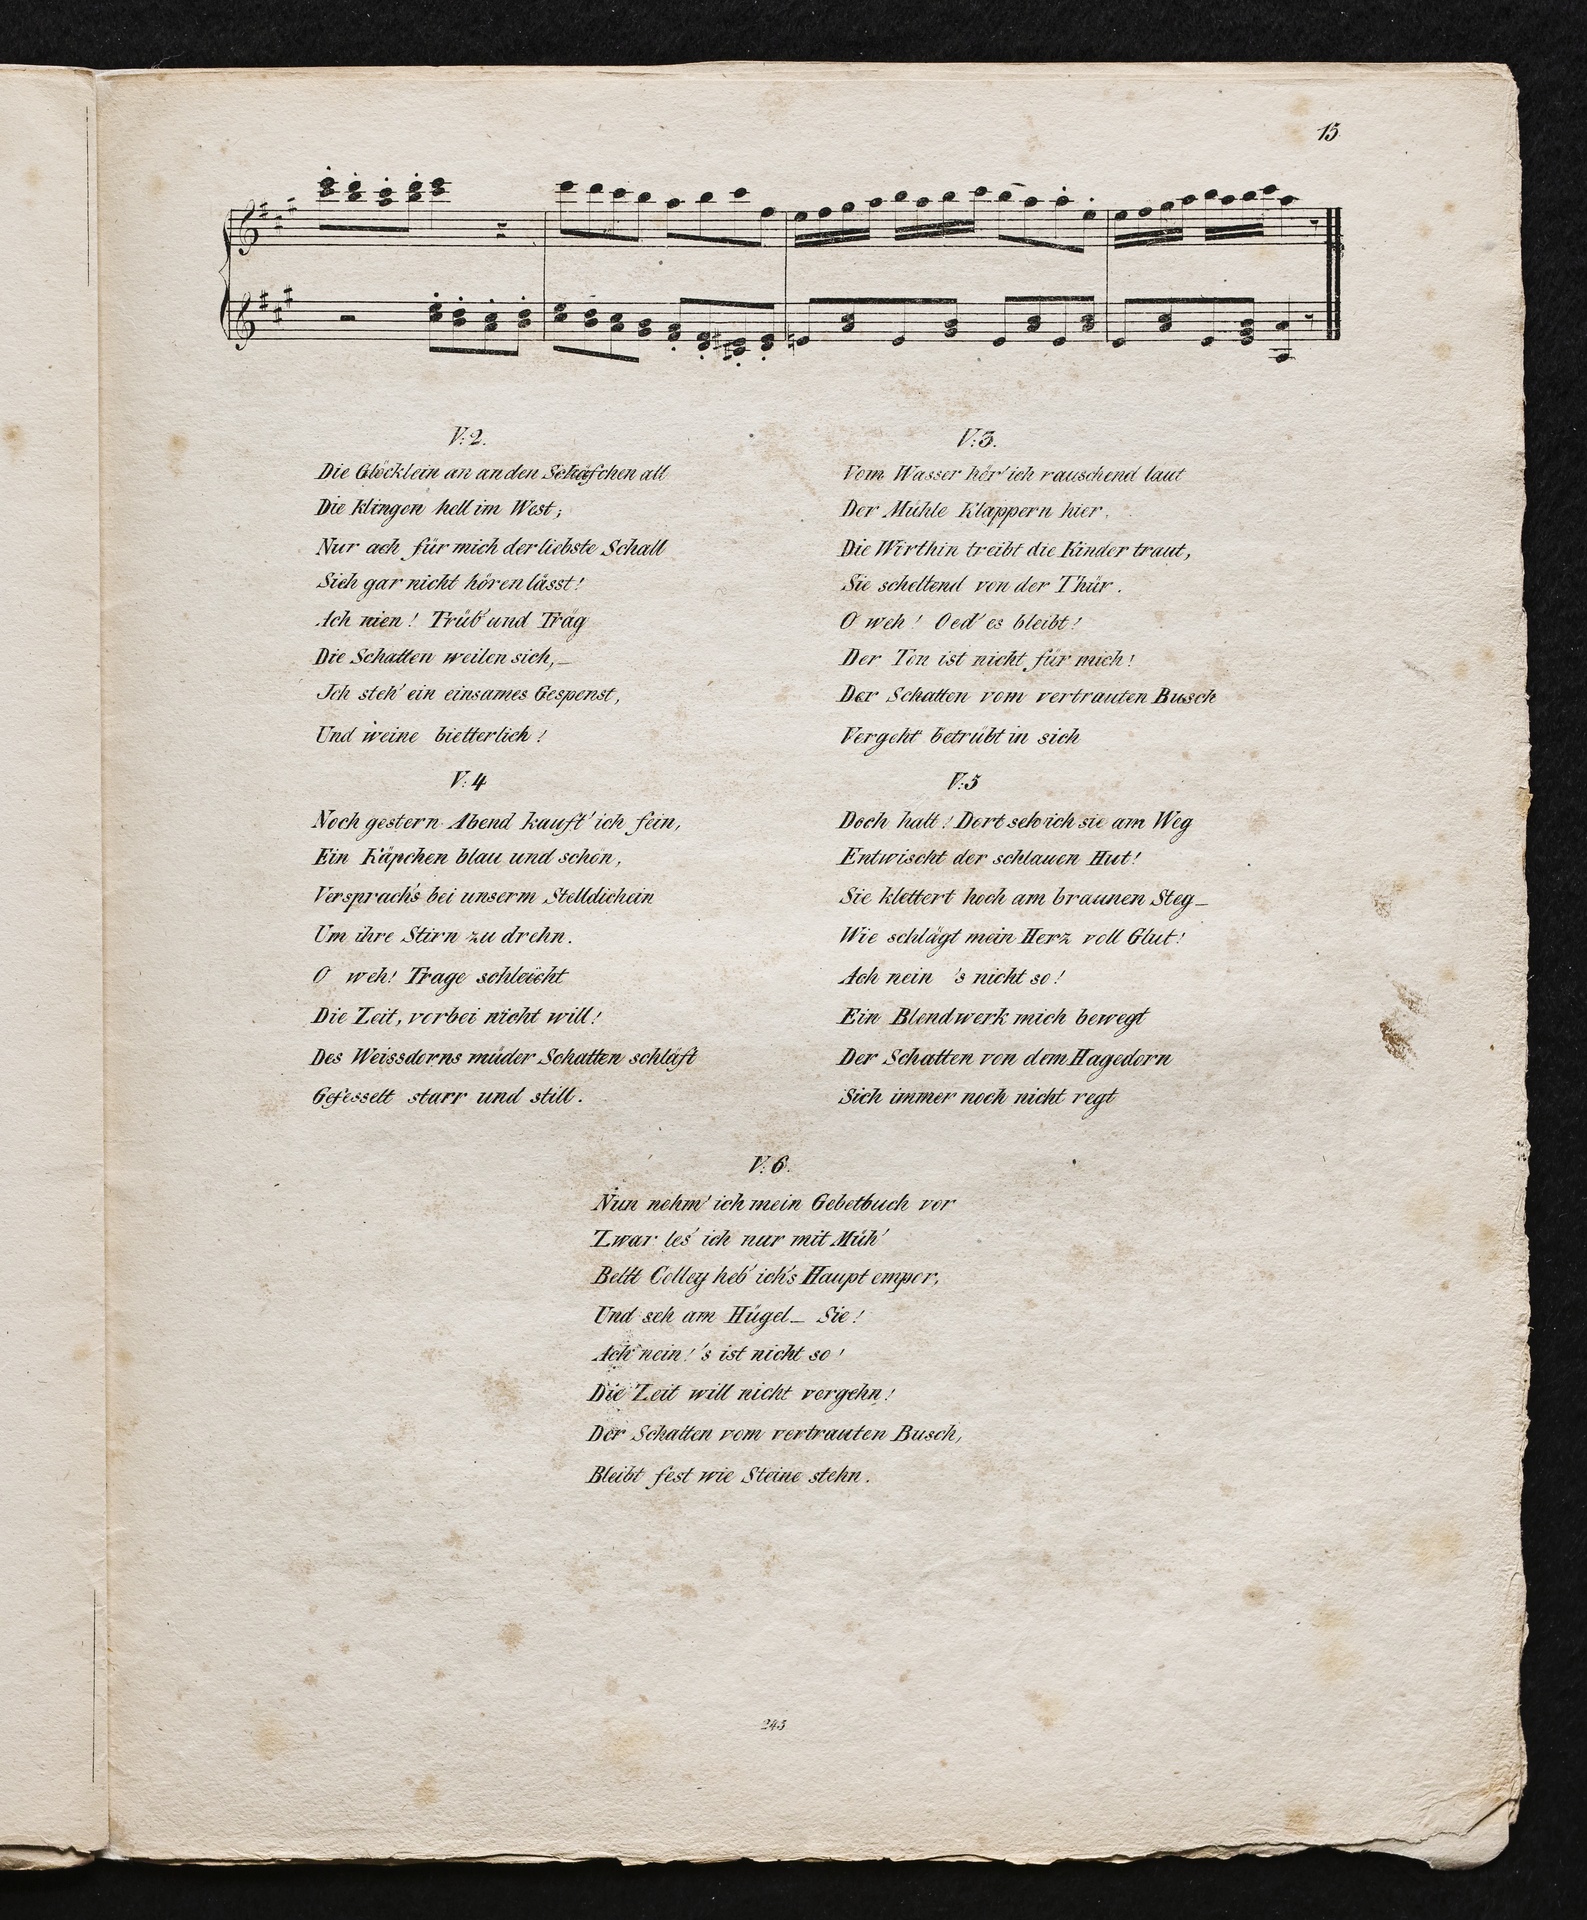 15
V: 2.
Die Glöcklein an an den Schäfchen all
Die klingen hell im West;
Nur ach für mich der liebste Schall
Sich gar nicht hören lässt!
Ach nien! Trüb' und Träg
Die Schatten weilen sich,—
Ich steh' ein einsames Gespenst,
Und weine bietterlich!
V: 3.
Vom Wasser hör' ich rauschend laut
Der Mühle Klappern hier.
Die Wirthin treibt die Kinder traut,
Sie scheltend von der Thür.
O weh! Oed' es bleibt!
Der Ton ist nicht für mich!
Der Schatten vom vertrauten Busch
Vergeht betrübt in sich
V: 4
Noch gestern Abend kauft' ich fein,
Ein Käpchen blau und schön,
Versprach's bei unserm Stelldichein
Um ihre Stirn zu drehn.
O weh! Trage schleicht
Die Zeit, vorbei nicht will!
Des Weissdorns müder Schatten schläft
Gefesselt starr und still.
V: 5
Doch halt! Dort seh' ich sie am Weg
Entwischt der schlauen Hut!
Sie klettert hoch am braunen Steg—
Wie schlägt mein Herz voll Glut!
Ach nein 's nicht so!
Ein Blendwerk mich bewegt
Der Schatten von dem Hagedorn
Sich immer noch nicht regt
V: 6.
Nun nehm' ich mein Gebetbuch vor
Zwar les' ich nur mit Müh'
Bellt Colley heb' ich's Haupt empor,
Und seh am Hügel— Sie!
Ach nein! 's ist nicht so!
Die Zeit will nicht vergehn!
Der Schatten vom vertrauten Busch,
Bleibt fest wie Steine stehn.
243